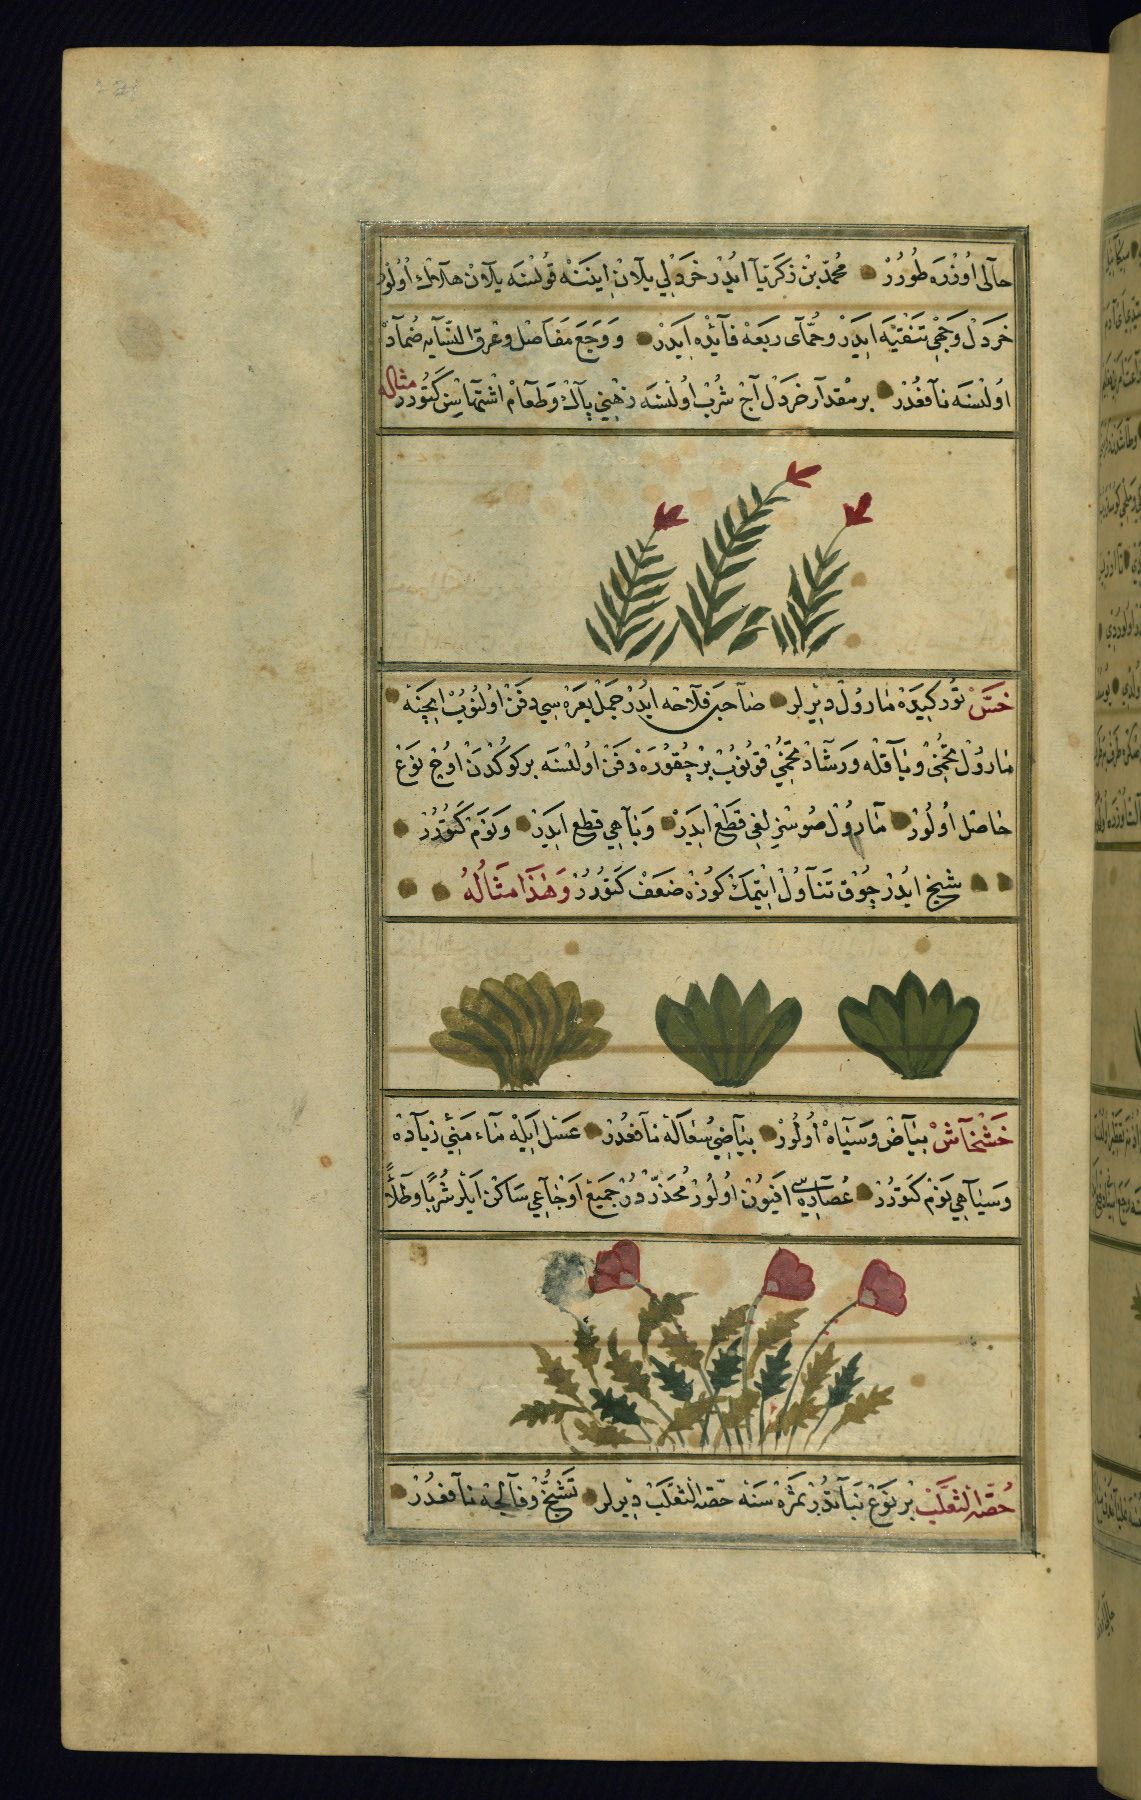 حالى اوزره طورر محمد بن زكريا ايدر خردلي يلان اينينه قولسه يلان هلاك اولور
خردل وجهي تنقيه ايدر وحماى ربعه فائده ايدر ووجع مفاصل وعرق النسايه ضماد
اولنسه نافعدر بر مقدار خردل آج شرب اولنسه ذهني پاك وطعام اشتهاسن كتورر مثاله
خس توركيده مارول ديرلر صاحب فلاحه ايدر جمل بعره سي دفن اولنوب ايچينه
مارول تخمي وباقله ورشاد تخمي قونوب بر چقورده دفن اولنسه بر كوكدن اوچ نوع
حاصل اولور مارول صوسزلغي قطع ايدر وباهي قطع ايدر ونوم كتورر
شيخ ايدر چوق تناول ايتمك كوزه ضعف كتورر وهذا مثاله
خشخاش بياض وسياه اولور بياضي سعاله نافعدر عسل ايله ماء مني زياده
وسياهي نوم كتورر عصاره سي افيون اولور مخدردر جميع اوجاعي ساكن ايلر شربا وطلاء
خصى الثعلب بر نوع نباتدر ثمره سنه خصى الثعلب ديرلر تشنج وفالجه نافعدر